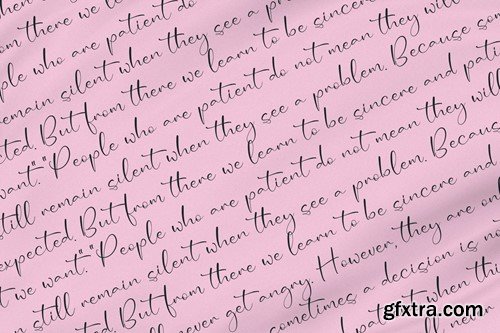 from there we learn to be sincere
ple who are patient do not mean they will
remain silent when they see a problem. Because so
cted. But from there we learn to be sincere and patie
want." "People who are patient do not mean they will
still remain silent when they see a problem. Because
expected. But from there we learn to be sincere and
t we want." "People who are patient do not mean they will
still remain silent when they see a problem. Because
expected. But from there we learn to be sincere and
never get angry. However, they are on
sometimes a decision is no
gfxtra.com